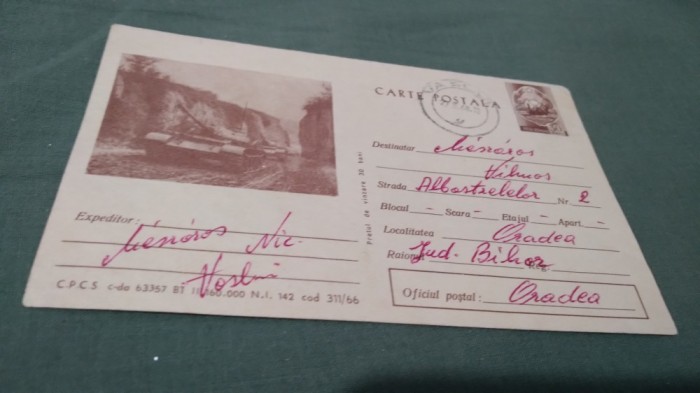 CARTE POSTALA
Destinatar Mészáros
Vilmos
Strada Albastrelelor Nr. 2
Blocul - Scara - Etajul - Apart. -
Localitatea Oradea
Raion Jud. Bihor Reg.
Oficiul poștal: Oradea
Prețul de vînzare 30 bani
Expeditor:
Mészáros Nic.
C.P.C.S. c-da 63357 BT 11.160.000 N.I. 142 cod 311/66